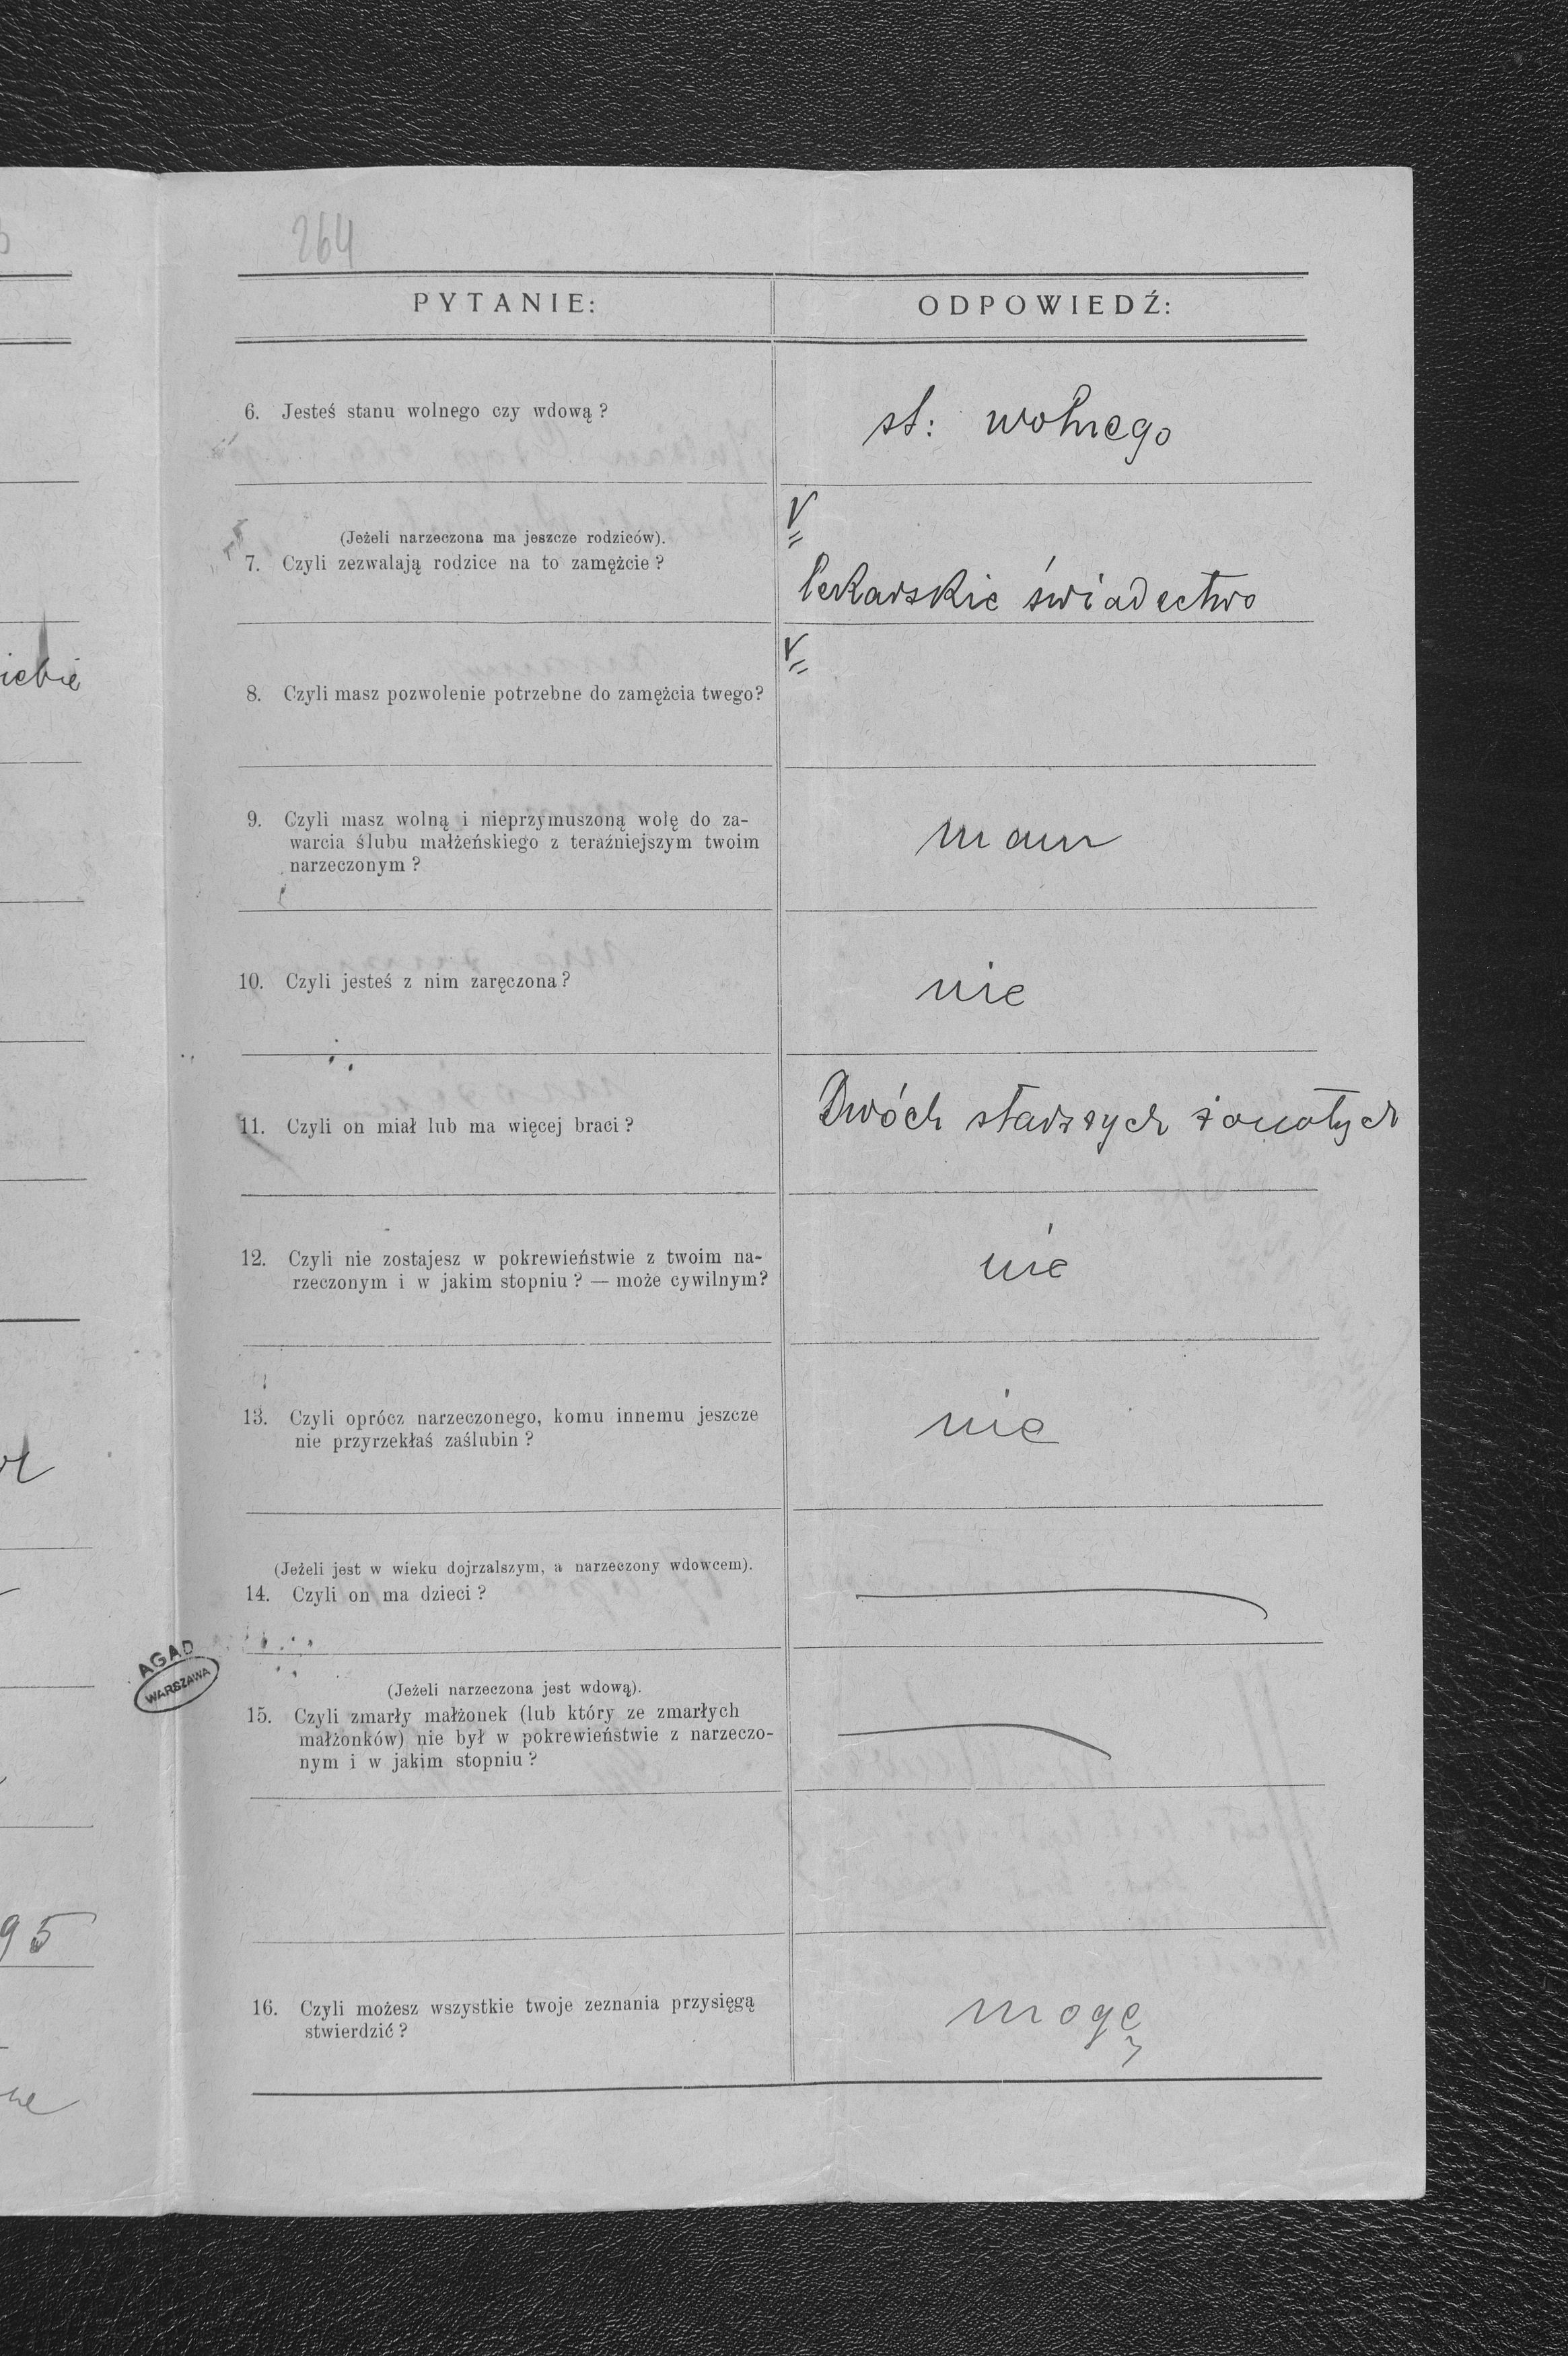 264
PYTANIE:
ODPOWIEDŹ:
6. Jesteś stanu wolnego czy wdową?
st: wolnego
(Jeżeli narzeczona ma jeszcze rodziców).
7. Czyli zezwalają rodzice na to zamężcie?
V
lekarskie świadectwo
8. Czyli masz pozwolenie potrzebne do zamężcia twego?
V
9. Czyli masz wolną i nieprzymuszoną wolę do za-
warcia ślubu małżeńskiego z teraźniejszym twoim
narzeczonym?
mam
10. Czyli jesteś z nim zaręczona?
nie
11. Czyli on miał lub ma więcej braci?
Dwóch starszych żonatych
12. Czyli nie zostajesz w pokrewieństwie z twoim na-
rzeczonym i w jakim stopniu? — może cywilnym?
nie
13. Czyli oprócz narzeczonego, komu innemu jeszcze
nie przyrzekłaś zaślubin?
nie
(Jeżeli jest w wieku dojrzalszym, a narzeczony wdowcem).
14. Czyli on ma dzieci?
AGAD
WARSZAWA
(Jeżeli narzeczona jest wdową).
15. Czyli zmarły małżonek (lub który ze zmarłych
małżonków) nie był w pokrewieństwie z narzeczo-
nym i w jakim stopniu?
95
16. Czyli możesz wszystkie twoje zeznania przysięgą
stwierdzić?
mogę